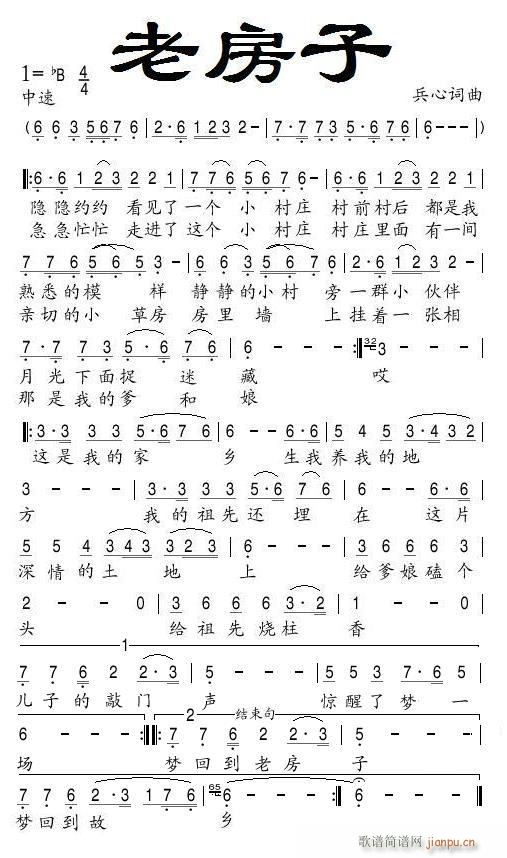 老房子
1=♭B 4/4
中速
兵心词曲
(6 6 3 5676 | 2·6 1232- | 7·7 73 5·676 | 6--- )
‖: 6·6 123 221 | 7·6 567 6- | 6·6 123 221 |
隐隐约约 看见了一个 小村庄 村前村后 都是我
急急忙忙 走进了这个 小村庄 村庄里面 有一间
熟悉的模样 静静的小村 旁一群小伙伴
亲切的小草房 房里墙 上挂着一张相
7·7 73 5·676 | 6 - - :‖ 3 - - - |
月光下面捉迷藏 哎
那是我的爹和娘
这是我的家乡 生我养我的地
方 我的祖先还埋在这片
5 5 4 343 | 3243 | 6 - - 6 6 6 |
深情的土地上 给爹娘磕个
2 - - 0 | 3 6 6 6 3·2 | 1 - - 0 |
头 给祖先烧柱香
1
7 7 6 2·3 | 5 - - - | 3 5 3 7·6 |
儿子的敲门声 惊醒了梦一
2 结束句
6 - - :‖ 7 7 6 2·3 | 5 - - - |
场 梦回到老房子
7 7 6 2·3 | 176 | 6 - - - ‖
梦回到故乡
歌谱简谱网
jianpu.cn